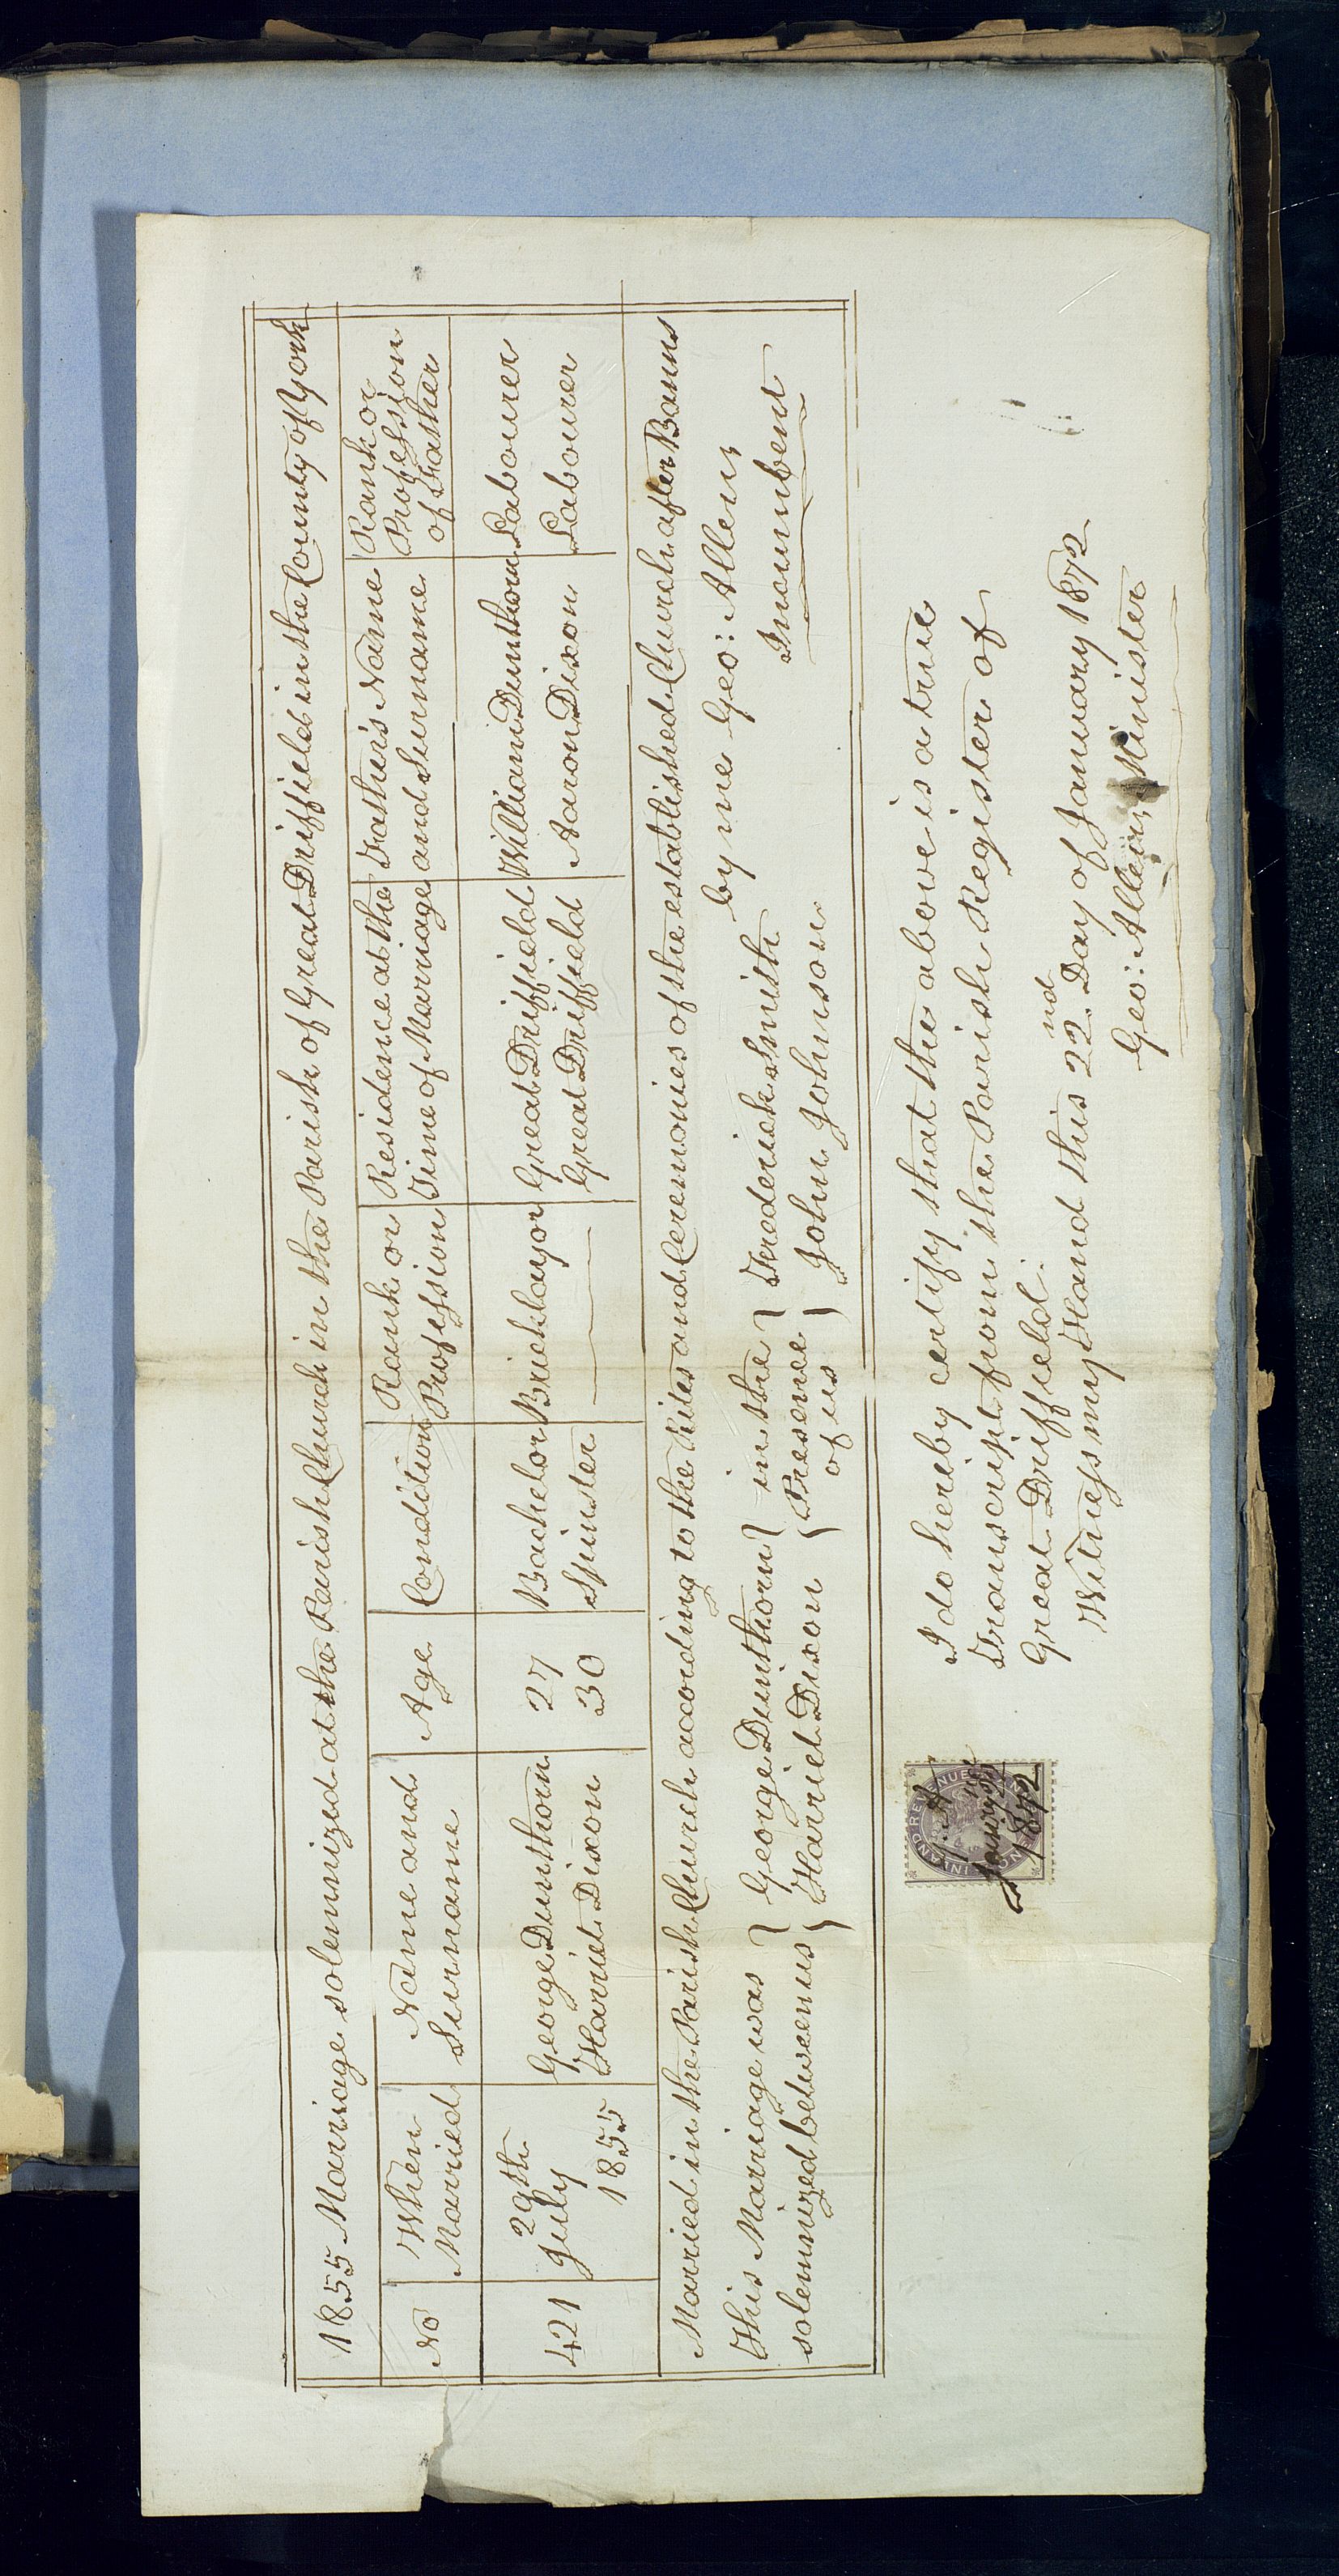 1855 Marriage solemnized at the Parish Church in the Parish of Great Driffield in the County of York
No When Married Name and Surname Age Condition Rank or Profession Residence at the Time of Marriage Father's Name and Surname Rank or Profession of Father
421 29th July 1855 George Dunthorn 27 Bachelor Bricklayor Great Driffield William Dunthorn Labourer
Harriet Dixon 30 Spinster Great Driffield Aaron Dixon Labourer
Married in the Parish Church according to the Rites and Ceremonies of the established Church after Banns
by me Geo: Allen,
Incumbent
This Marriage was solemnized between us
George Dunthorn
Harriet Dixon
in the Presence of us
Frederick Smith
John Johnson
I do hereby certify that the above is a true
Transcript from the Parish Register of
Great Driffield.
Witness my Hand this 22nd Day of January 1872
Geo: Allen, Minister
INLAND REVENUE
ONE PENNY
G. A.
1872